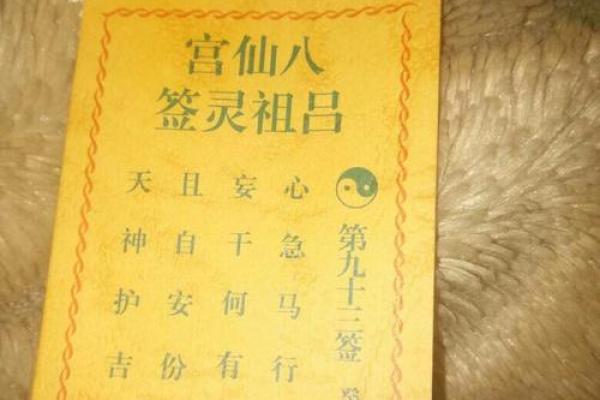 八仙宫
吕祖灵签
第九十三签
心急马行
妄干何有
且自安份
天神护吉